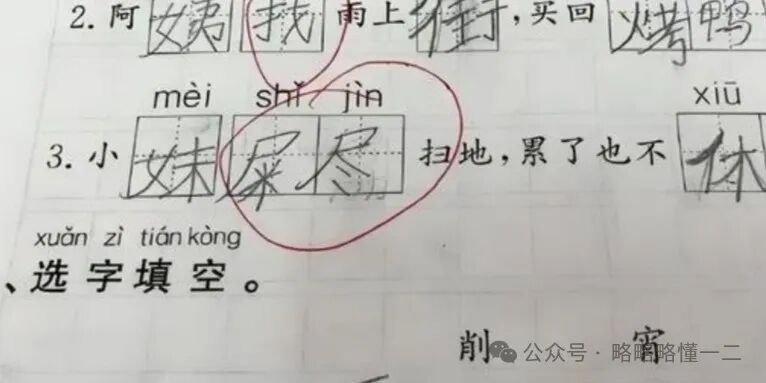 2. 阿姨找雨上街,买回烤鸭
mèi shǐ jìn xiū
3. 小妹屎尽扫地,累了也不休
xuǎn zì tián kòng
、选字填空。
削 宵
公众号·略略略懂一二